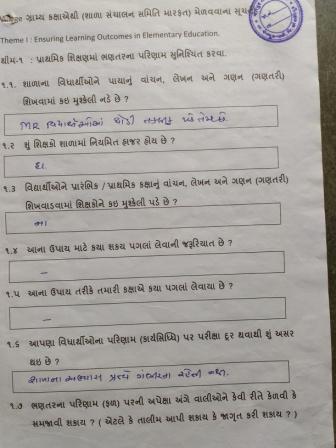 ગ્રામ્ય કક્ષાએથી (શાળા સંચાલન સમિતિ મારફત) મેળવવાના
Theme I : Ensuring Learning Outcomes in Elementary Education.
થીમ-૧ : પ્રાથમિક શિક્ષણમાં ભણતરના પરિણામ સુનિશ્ચિત કરવા.
૧.૧. શાળાના વિદ્યાર્થીઓને પાયાનું વાંચન, લેખન અને ગણન (ગણતરી)
શિખવામાં કઇ મુશ્કેલી નડે છે ?
MR
૧.૨ શું શિક્ષકો શાળામાં નિયમિત હાજર હોય છે ?
હા.
૧.૩ વિદ્યાર્થીઓને પ્રારંભિક / પ્રાથમિક કક્ષાનું વાંચન, લેખન અને ગણન (ગણતરી)
શિખવાડવામાં શિક્ષકોને કઇ મુશ્કેલી પડે છે ?
ના
૧.૪ આના ઉપાય માટે કયા શક્ય પગલાં લેવાની જરૂરિયાત છે ?
–
૧.૫ આના ઉપાય તરીકે તમારી કક્ષાએ કયા પગલાં લેવાયા છે ?
–
૧.૬ આપણા વિદ્યાર્થીઓના પરિણામ (કાર્યસિધ્ધિ) પર પરીક્ષા દૂર થવાથી શું અસર
થઇ છે ?
૧.૭ ભણતરના પરિણામ (ફળ) પરની અપેક્ષા અંગે વાલીઓને કેવી રીતે કેળવી કે
સમજાવી શકાય ? ( એટલે કે તાલીમ આપી શકાય કે જાગૃત કરી શકાય ? )